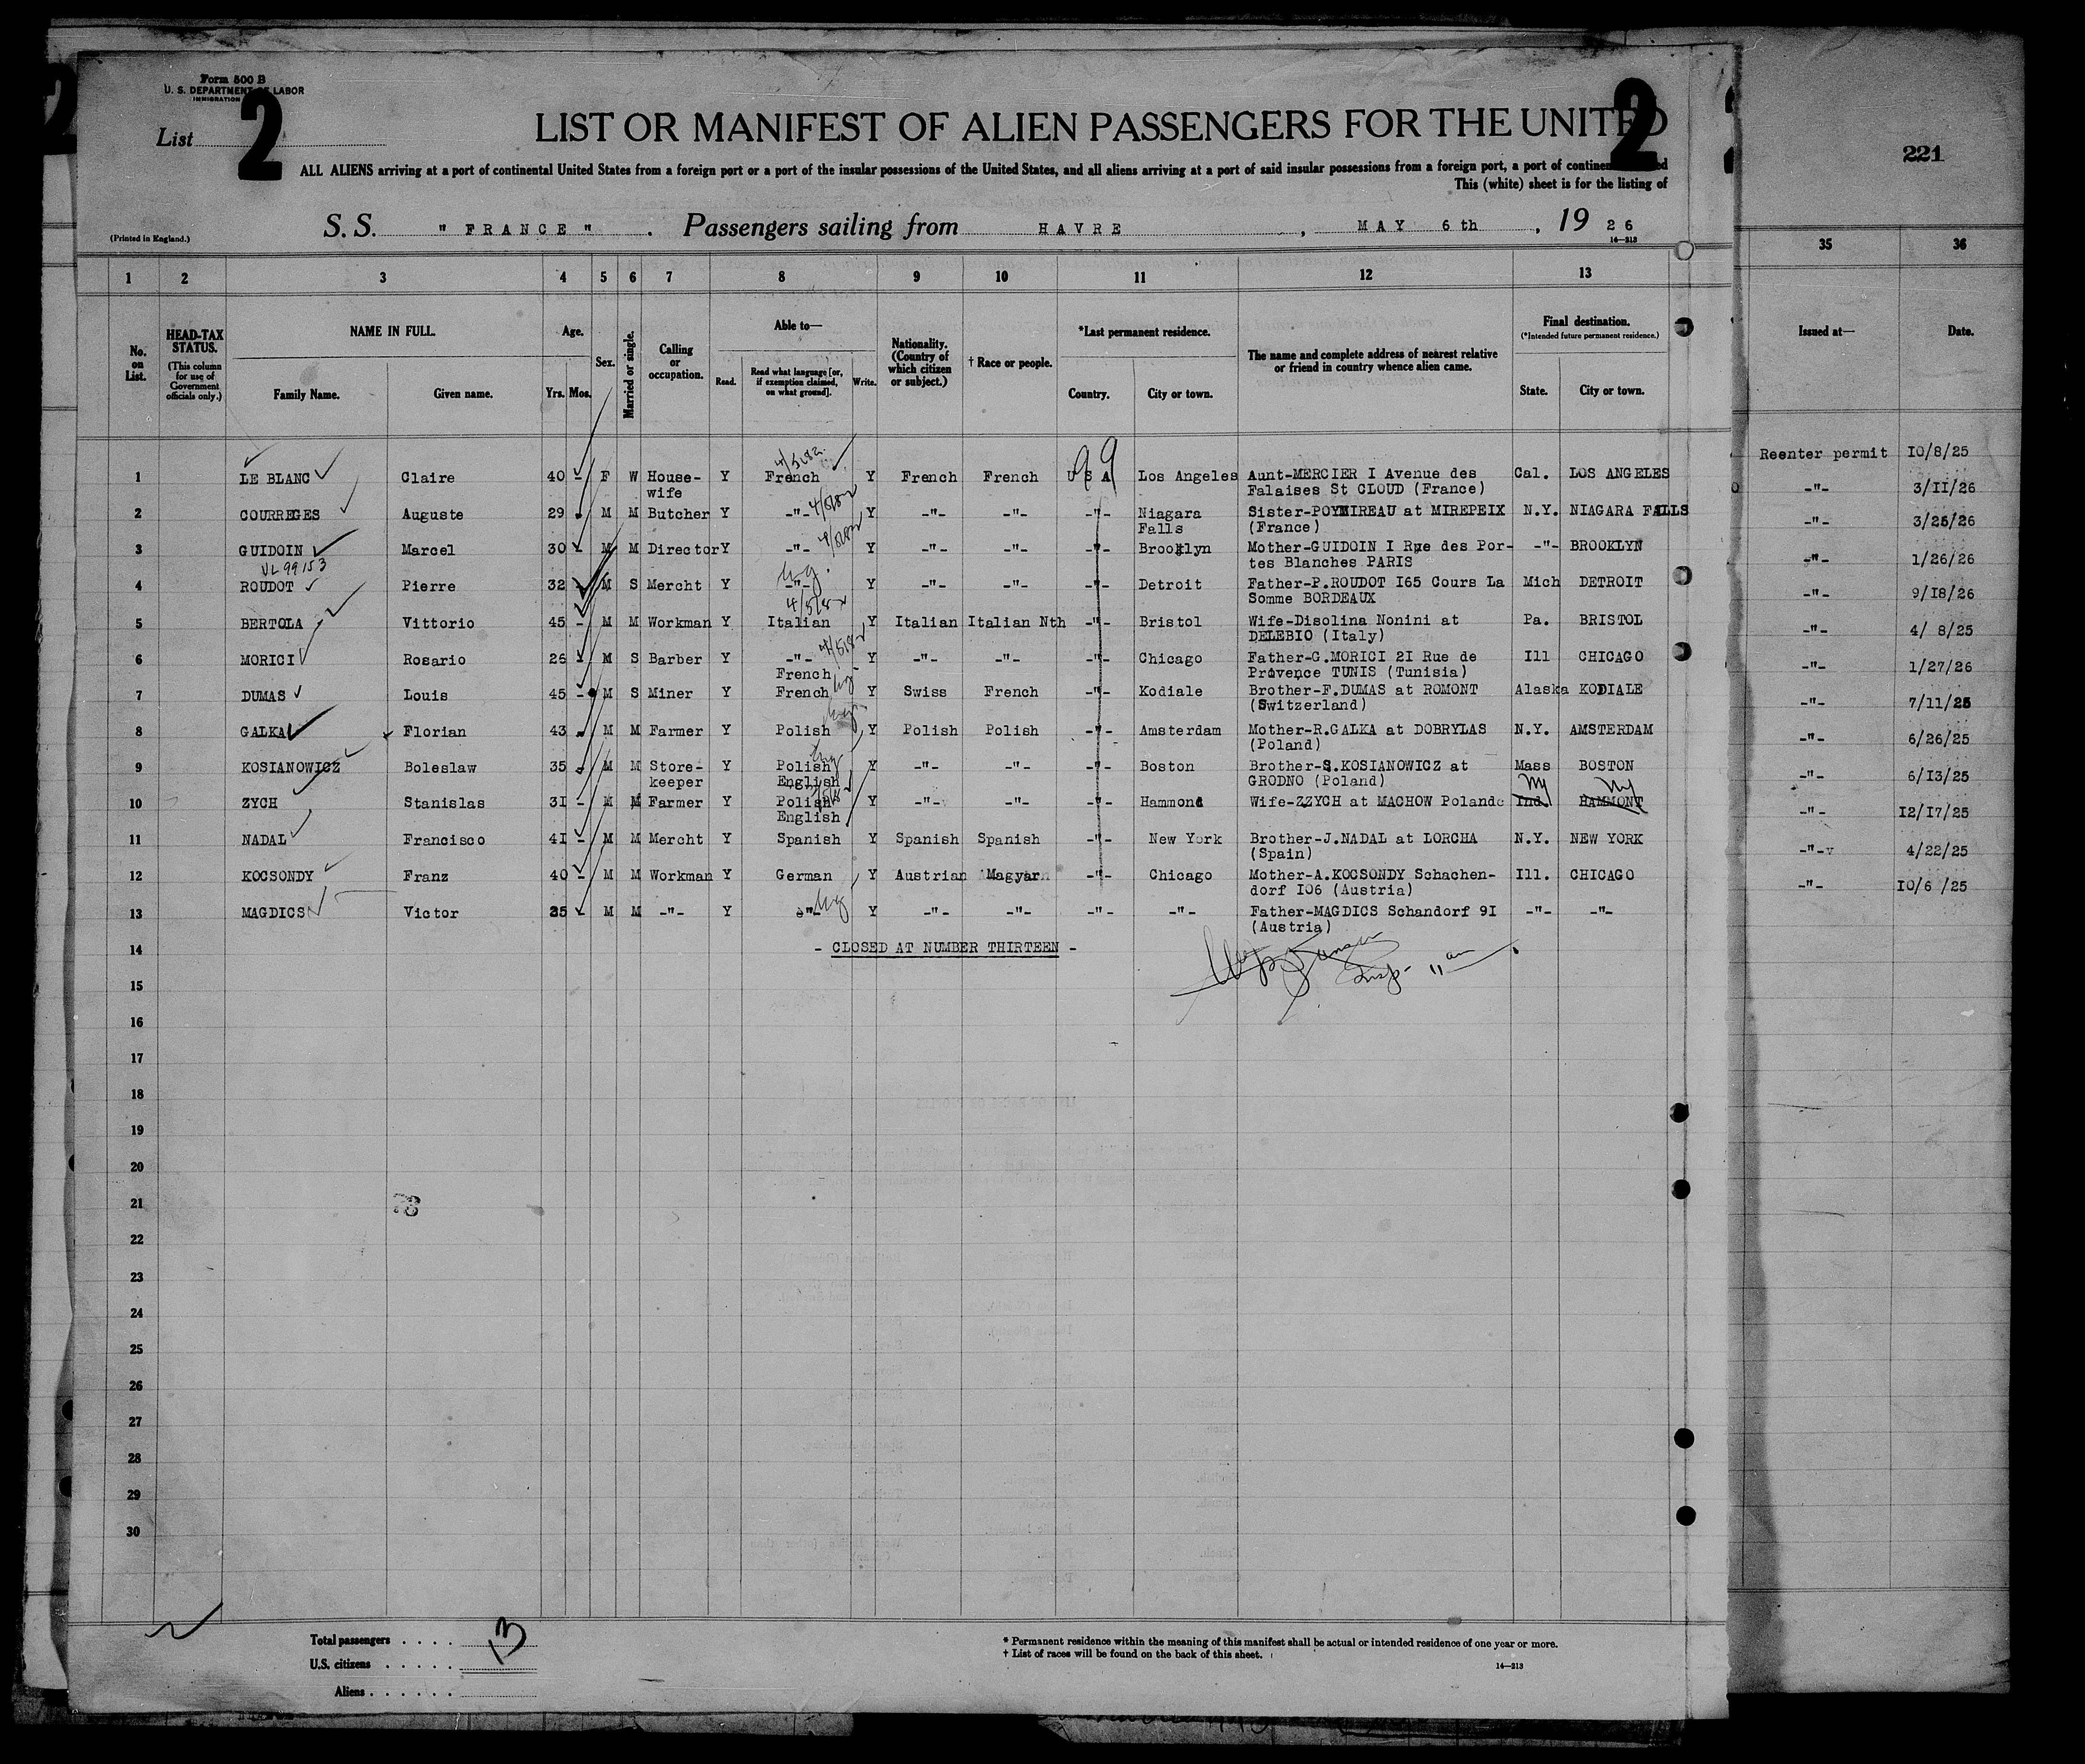 Form 500 B
U. S. DEPARTMENT OF LABOR
IMMIGRATION
List 2
2
221
LIST OR MANIFEST OF ALIEN PASSENGERS FOR THE UNITED
ALL ALIENS arriving at a port of continental United States from a foreign port or a port of the insular possessions of the United States, and all aliens arriving at a port of said insular possessions from a foreign port, a port of continental
This (white) sheet is for the listing of
(Printed in England.)
S.S. "FRANCE". Passengers sailing from HAVRE, MAY 6th, 19 26
14—213
1 2 3 4 5 6 7 8 9 10 11 12 13 35 36
No. on List. HEAD-TAX STATUS. (This column for use of Government officials only.) NAME IN FULL. Family Name. Given name. Age. Yrs. Mos. Sex. Married or single. Calling or occupation. Able to— Read. Read what language [or, if exemption claimed, on what ground]. Write. Nationality. (Country of which citizen or subject.) † Race or people. *Last permanent residence. Country. City or town. The name and complete address of nearest relative or friend in country whence alien came. Final destination. (*Intended future permanent residence.) State. City or town. Issued at— Date.
1 LE BLANC Claire 40 - F W House-wife Y French Y French French U S A Los Angeles Aunt-MERCIER I Avenue des Falaises St CLOUD (France) Cal. LOS ANGELES
2 COURREGES Auguste 29 - M M Butcher Y -"- Y -"- -"- -"- Niagara Falls Sister-POYMIREAU at MIREPEIX (France) N.Y. NIAGARA FALLS
3 GUIDOIN Marcel 30 - M M Director Y -"- Y -"- -"- -"- Brooklyn Mother-GUIDOIN I Rue des Portes Blanches PARIS -"- BROOKLYN
VL 99153
4 ROUDOT Pierre 32 - M S Mercht Y -"- Y -"- -"- -"- Detroit Father-P.ROUDOT I65 Cours La Somme BORDEAUX Mich DETROIT
5 BERTOLA Vittorio 45 - M M Workman Y Italian Y Italian Italian Nth -"- Bristol Wife-Disolina Nonini at DELEBIO (Italy) Pa. BRISTOL
6 MORICI Rosario 26 - M S Barber Y -"- French Y -"- -"- -"- Chicago Father-G.MORICI 2I Rue de Provence TUNIS (Tunisia) Ill CHICAGO
7 DUMAS Louis 45 - M S Miner Y French Y Swiss French -"- Kodiale Brother-F.DUMAS at ROMONT (Switzerland) Alaska KODIALE
8 GALKA Florian 43 - M M Farmer Y Polish Y Polish Polish -"- Amsterdam Mother-R.GALKA at DOBRYLAS (Poland) N.Y. AMSTERDAM
9 KOSIANOWICZ Boleslaw 35 - M M Store-keeper Y Polish English Y -"- -"- -"- Boston Brother-S.KOSIANOWICZ at GRODNO (Poland) Mass BOSTON
10 ZYCH Stanislas 3I - M M Farmer Y Polish English Y -"- -"- -"- Hammond Wife-ZZYCH at MACHOW Polande Ind. HAMMONT NY NY
11 NADAL Francisco 4I - M M Mercht Y Spanish Y Spanish Spanish -"- New York Brother-J.NADAL at LORCHA (Spain) N.Y. NEW YORK
12 KOCSONDY Franz 40 - M M Workman Y German Y Austrian Magyar -"- Chicago Mother-A.KOCSONDY Schachendorf I06 (Austria) Ill. CHICAGO
13 MAGDICS Victor 35 - M M -"- Y -"- Y -"- -"- -"- -"- Father-MAGDICS Schandorf 9I (Austria) -"- -"-
14 - CLOSED AT NUMBER THIRTEEN -
Insp- 11 am
15
16
17
18
19
20
21
22
23
24
25
26
27
28
29
30
Reenter permit I0/8/25
-"- 3/II/26
-"- 3/25/26
-"- 1/26/26
-"- 9/I8/26
-"- 4/ 8/25
-"- 1/27/26
-"- 7/11/25
-"- 6/26/25
-"- 6/I3/25
-"- I2/I7/25
-"- 4/22/25
-"- I0/6 /25
Total passengers 13
U.S. citizens
Aliens
* Permanent residence within the meaning of this manifest shall be actual or intended residence of one year or more.
† List of races will be found on the back of this sheet.
14—213